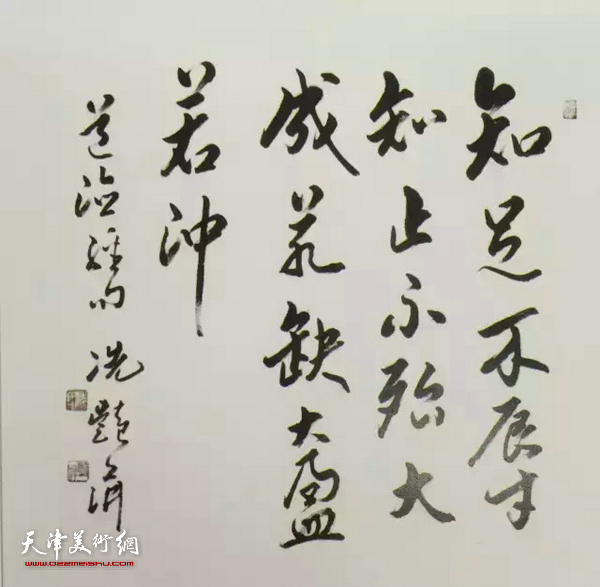 知足不辱
知止不殆大
成若缺大盈
若沖
道德經句 冼
天津美術網
www.022meishu.com